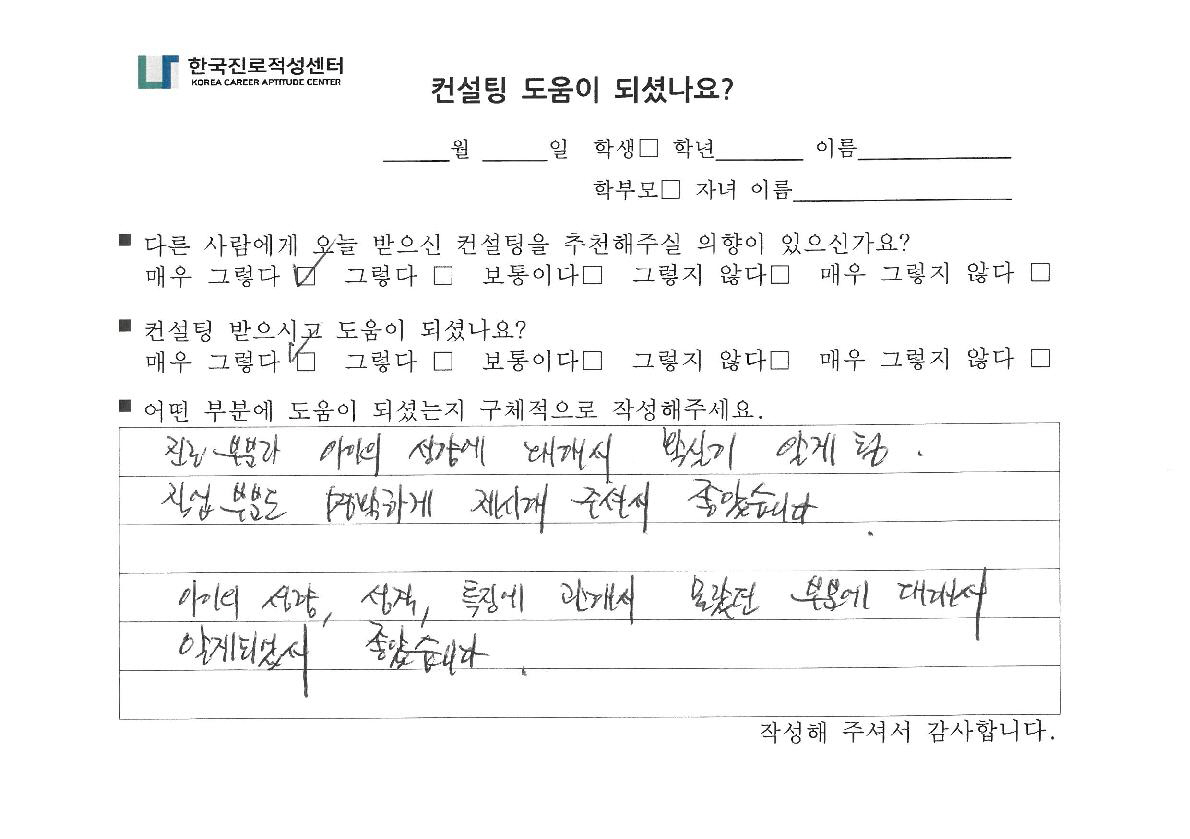 한국진로적성센터
KOREA CAREER APTITUDE CENTER
컨설팅 도움이 되셨나요?
월 일 학생□ 학년 이름
학부모□ 자녀 이름
■ 다른 사람에게 오늘 받으신 컨설팅을 추천해주실 의향이 있으신가요?
매우 그렇다 ☑ 그렇다 □ 보통이다□ 그렇지 않다□ 매우 그렇지 않다 □
■ 컨설팅 받으시고 도움이 되셨나요?
매우 그렇다 ☑ 그렇다 □ 보통이다□ 그렇지 않다□ 매우 그렇지 않다 □
■ 어떤 부분에 도움이 되셨는지 구체적으로 작성해주세요.
진로 부분과 아이의 성향에 대해서 확실히 알게 됨.
직업 부분도 명확하게 제시해 주셔서 좋았습니다.
아이의 성향, 성격, 특징에 관해서 몰랐던 부분에 대해서
알게되었서 좋았습니다.
작성해 주셔서 감사합니다.